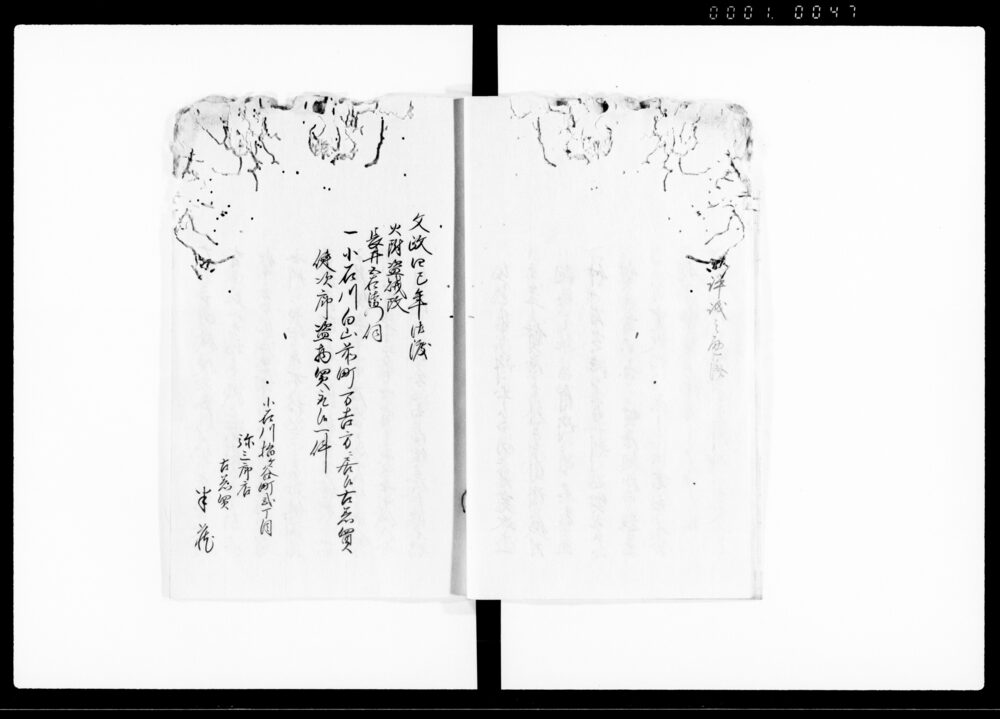 0001. 0047
評議之通済
文政四巳年御渡
火附盗賊改
長井五右衛門伺
一小石川白山前町万吉方ニ居候古着買
使次郎盗物買取候一件
小石川指ヶ谷町弐丁目
弥三郎店
古着買
半蔵